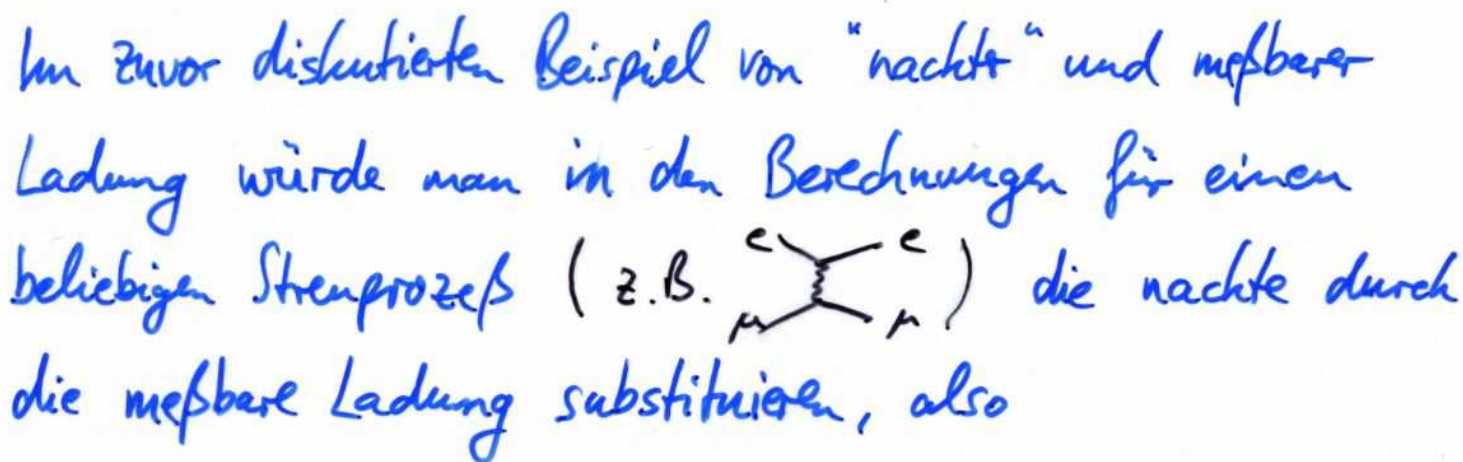 Im zuvor diskutierten Beispiel von "nackter" und meßbarer
Ladung würde man in den Berechnungen für einen
beliebigen Streuprozeß ( z.B. e e μ μ ) die nackte durch
die meßbare Ladung substituieren, also